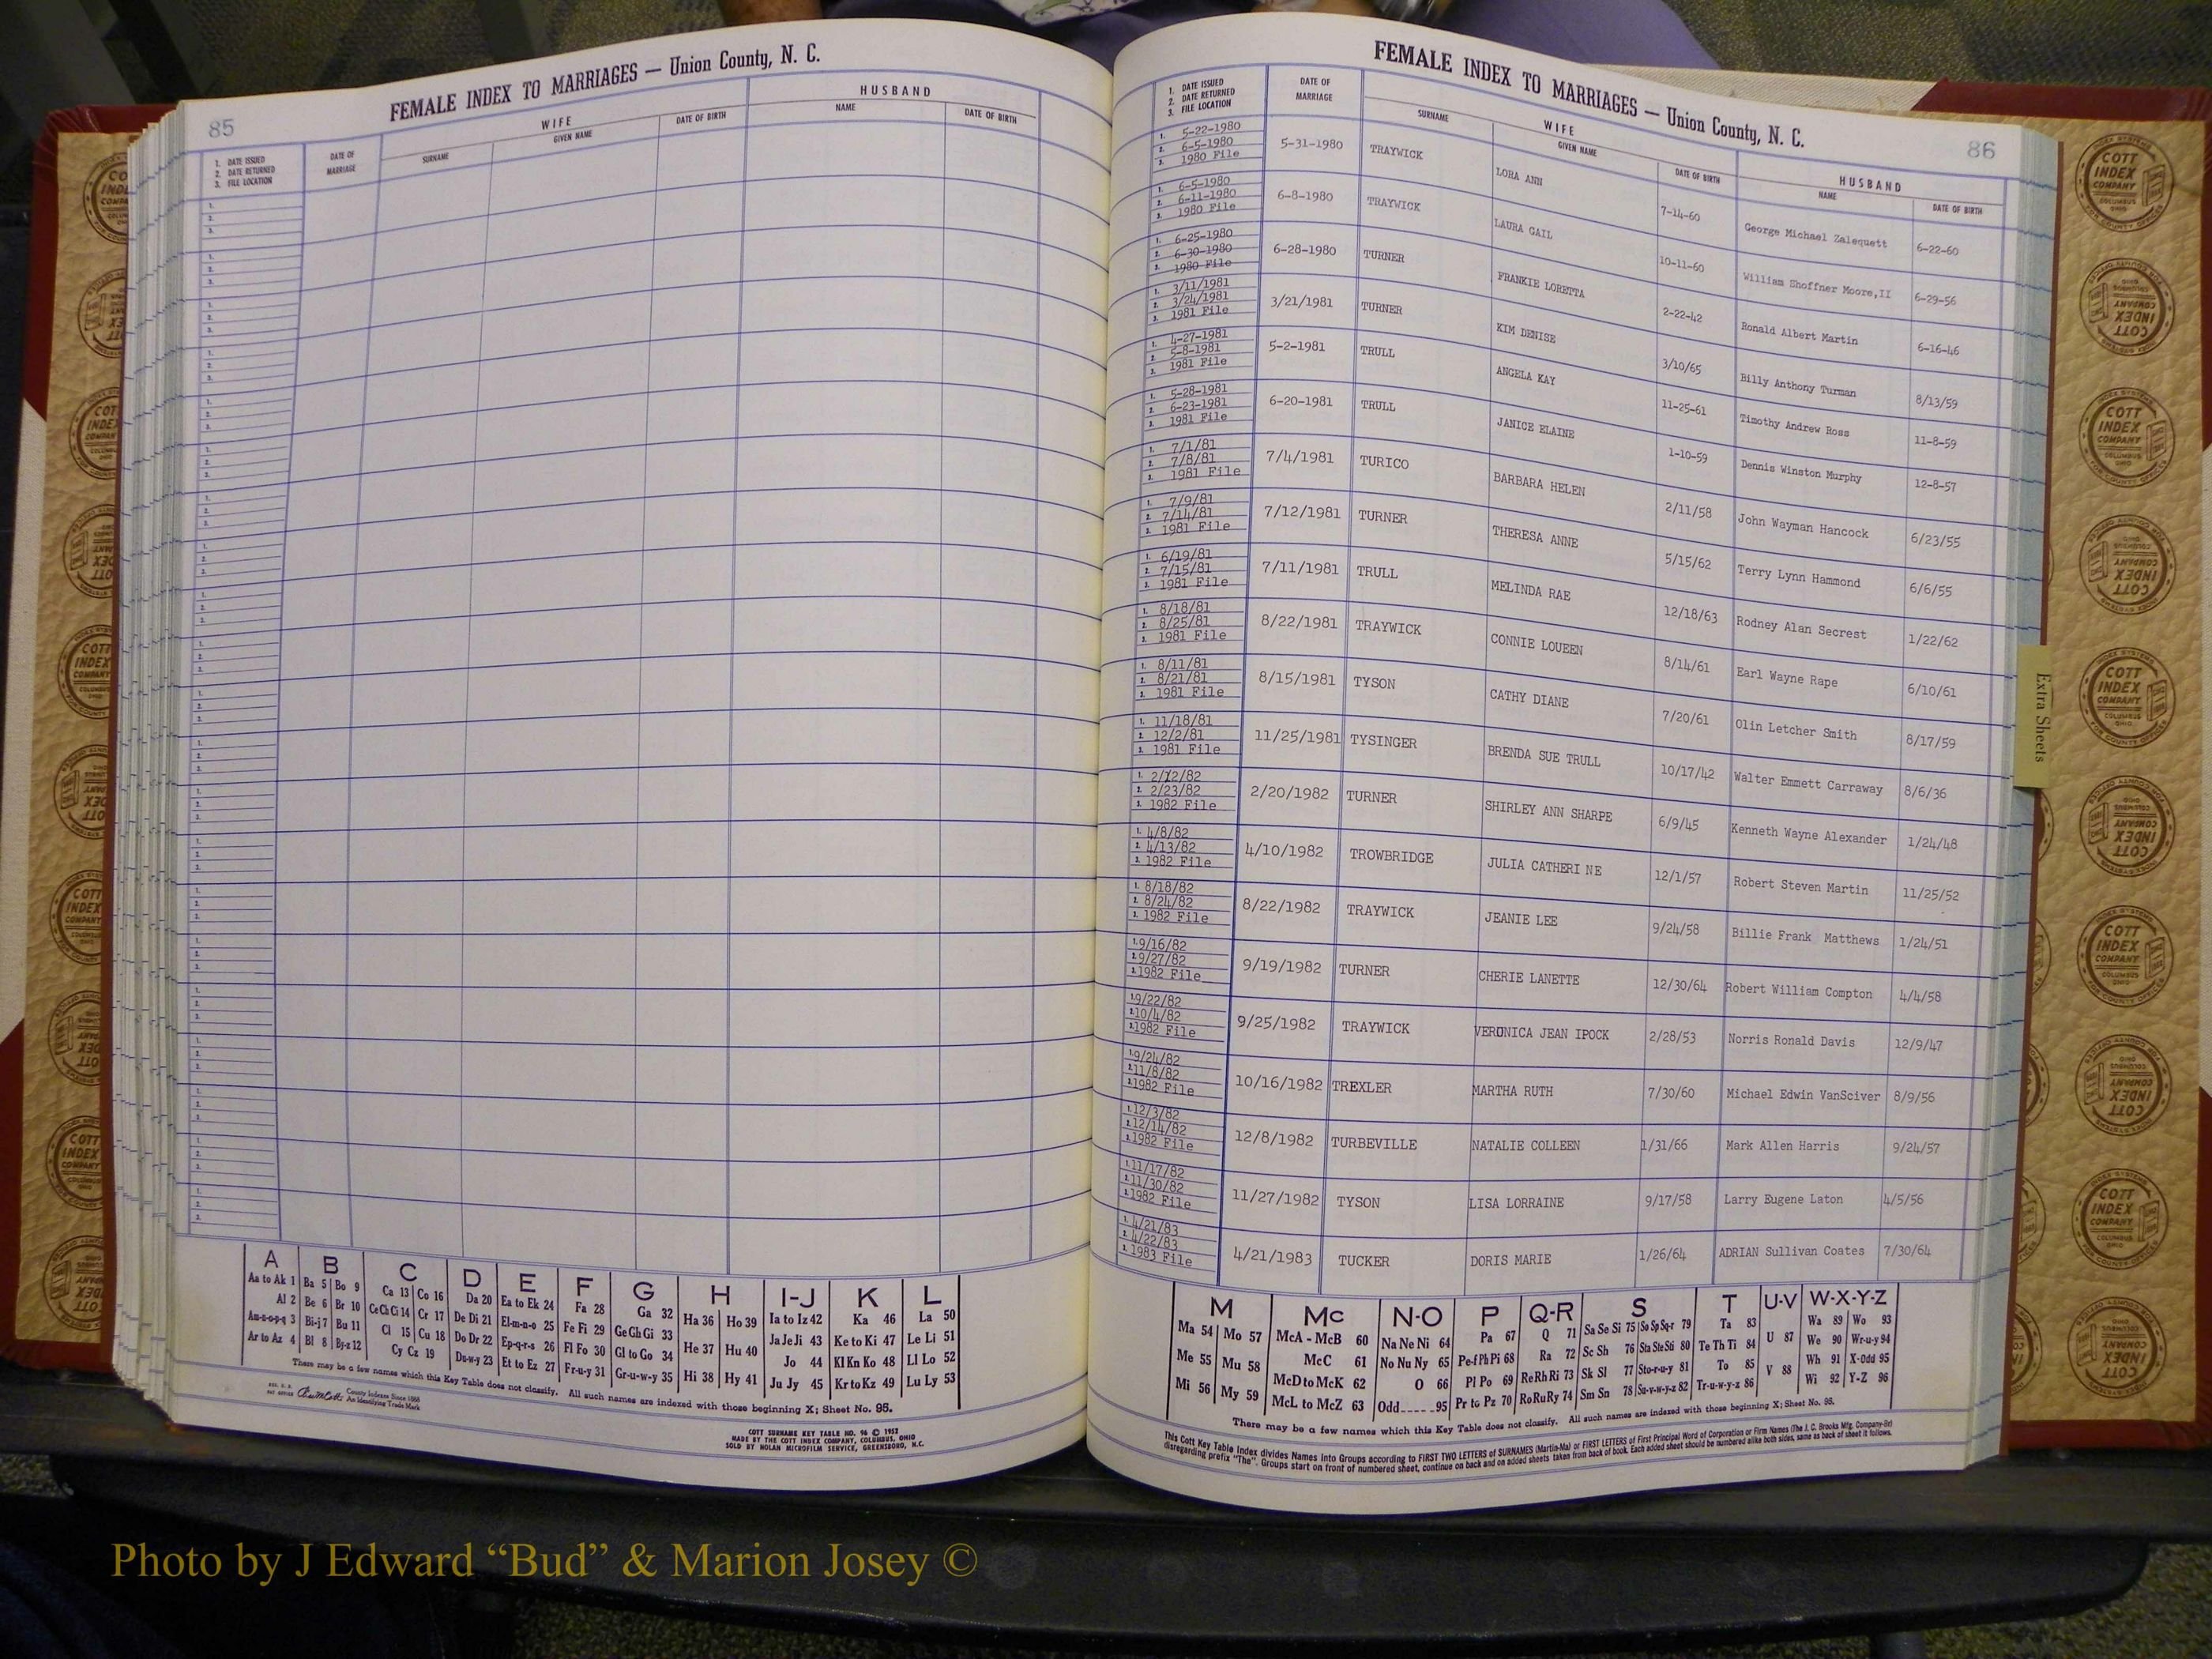 FEMALE INDEX TO MARRIAGES — Union County, N. C.
85
1. DATE ISSUED
2. DATE RETURNED
3. FILE LOCATION
DATE OF MARRIAGE
WIFE
SURNAME
GIVEN NAME
DATE OF BIRTH
HUSBAND
NAME
DATE OF BIRTH
A B C D E F G H I-J K L
Aa to Ak 1 Ba 5 Bo 9 Ca 13 Co 16 Da 20 Ea to Ek 24 Fa 28 Ga 32 Ha 36 Ho 39 Ia to Iz 42 Ka 46 La 50
Al 2 Be 6 Br 10 Ce Ch Ci 14 Cr 17 De Di 21 El-m-n-o 25 Fe Fi 29 Ge Gh Gi 33 He 37 Hu 40 Ja Je Ji 43 Ke to Ki 47 Le Li 51
Am-n-o-p-q 3 Bi-j 7 Bu 11 Cl 15 Cu 18 Do Dr 22 Ep-q-r-s 26 Fl Fo 30 Gl to Go 34 Hi 38 Hy 41 Jo 44 Kl Kn Ko 48 Ll Lo 52
Ar to Az 4 Bl 8 By-z 12 Cy Cz 19 Du-w-y 23 Et to Ez 27 Fr-u-y 31 Gr-u-w-y 35 Ju Jy 45 Kr to Kz 49 Lu Ly 53
There may be a few names which this Key Table does not classify. All such names are indexed with those beginning X; Sheet No. 95.
County Indexes Since 1888
An Identifying Trade Mark
COTT SURNAME KEY TABLE NO. 96 © 1952
MADE BY THE COTT INDEX COMPANY, COLUMBUS, OHIO
SOLD BY NOLAN MICROFILM SERVICE, GREENSBORO, N.C.
FEMALE INDEX TO MARRIAGES — Union County, N. C.
86
1. DATE ISSUED
2. DATE RETURNED
3. FILE LOCATION
DATE OF MARRIAGE
WIFE
SURNAME
GIVEN NAME
DATE OF BIRTH
HUSBAND
NAME
DATE OF BIRTH
1. 5-22-1980
2. 6-5-1980
3. 1980 File
5-31-1980 TRAYWICK LORA ANN 7-14-60 George Michael Zalequett 6-22-60
1. 6-5-1980
2. 6-11-1980
3. 1980 File
6-8-1980 TRAYWICK LAURA GAIL 10-11-60 William Shoffner Moore,II 6-29-56
1. 6-25-1980
2. 6-30-1980
3. 1980 File
6-28-1980 TURNER FRANKIE LORETTA 2-22-42 Ronald Albert Martin 6-16-46
1. 3/11/1981
2. 3/24/1981
3. 1981 File
3/21/1981 TURNER KIM DENISE 3/10/65 Billy Anthony Turman 8/13/59
1. 4-27-1981
2. 5-8-1981
3. 1981 File
5-2-1981 TRULL ANGELA KAY 11-25-61 Timothy Andrew Ross 11-8-59
1. 5-28-1981
2. 6-23-1981
3. 1981 File
6-20-1981 TRULL JANICE ELAINE 1-10-59 Dennis Winston Murphy 12-8-57
1. 7/1/81
2. 7/8/81
3. 1981 File
7/4/1981 TURICO BARBARA HELEN 2/11/58 John Wayman Hancock 6/23/55
1. 7/9/81
2. 7/14/81
3. 1981 File
7/12/1981 TURNER THERESA ANNE 5/15/62 Terry Lynn Hammond 6/6/55
1. 6/19/81
2. 7/15/81
3. 1981 File
7/11/1981 TRULL MELINDA RAE 12/18/63 Rodney Alan Secrest 1/22/62
1. 8/18/81
2. 8/25/81
3. 1981 File
8/22/1981 TRAYWICK CONNIE LOUEEN 8/14/61 Earl Wayne Rape 6/10/61
1. 8/11/81
2. 8/21/81
3. 1981 File
8/15/1981 TYSON CATHY DIANE 7/20/61 Olin Letcher Smith 8/17/59
1. 11/18/81
2. 12/2/81
3. 1981 File
11/25/1981 TYSINGER BRENDA SUE TRULL 10/17/42 Walter Emmett Carraway 8/6/36
1. 2/12/82
2. 2/23/82
3. 1982 File
2/20/1982 TURNER SHIRLEY ANN SHARPE 6/9/45 Kenneth Wayne Alexander 1/24/48
1. 4/8/82
2. 4/13/82
3. 1982 File
4/10/1982 TROWBRIDGE JULIA CATHERI NE 12/1/57 Robert Steven Martin 11/25/52
1. 8/18/82
2. 8/24/82
3. 1982 File
8/22/1982 TRAYWICK JEANIE LEE 9/24/58 Billie Frank Matthews 1/24/51
1. 9/16/82
2. 9/27/82
3. 1982 File
9/19/1982 TURNER CHERIE LANETTE 12/30/64 Robert William Compton 4/4/58
1. 9/22/82
2. 10/4/82
3. 1982 File
9/25/1982 TRAYWICK VERONICA JEAN IPOCK 2/28/53 Norris Ronald Davis 12/9/47
1. 9/24/82
2. 11/8/82
3. 1982 File
10/16/1982 TREXLER MARTHA RUTH 7/30/60 Michael Edwin VanSciver 8/9/56
1. 12/3/82
2. 12/14/82
3. 1982 File
12/8/1982 TURBEVILLE NATALIE COLLEEN 1/31/66 Mark Allen Harris 9/24/57
1. 11/17/82
2. 11/30/82
3. 1982 File
11/27/1982 TYSON LISA LORRAINE 9/17/58 Larry Eugene Laton 4/5/56
1. 4/21/83
2. 4/22/83
3. 1983 File
4/21/1983 TUCKER DORIS MARIE 1/26/64 ADRIAN Sullivan Coates 7/30/64
M Mc N-O P Q-R S T U-V W-X-Y-Z
Ma 54 Mo 57 McA - McB 60 Na Ne Ni 64 Pa 67 Q 71 Sa Se Si 75 So Sp Sq-r 79 Ta 83 U 87 Wa 89 Wo 93
Me 55 Mu 58 McC 61 No Nu Ny 65 Pe-f Ph Pi 68 Ra 72 Sc Sh 76 Sta Ste Sti 80 Te Th Ti 84 V 88 We 90 Wr-u-y 94
Mi 56 My 59 McD to McK 62 O 66 Pl Po 69 Re Rh Ri 73 Sk Sl 77 Sto-r-u-y 81 To 85 Wh 91 X-Odd 95
McL to McZ 63 Odd 95 Pr to Pz 70 Ro Ru Ry 74 Sm Sn 78 Su-v-w-y-z 82 Tr-u-w-y-z 86 Wi 92 Y-Z 96
There may be a few names which this Key Table does not classify. All such names are indexed with those beginning X; Sheet No. 95.
This Cott Key Table Index divides Names Into Groups according to FIRST TWO LETTERS of SURNAMES (Martin-Ma) or FIRST LETTERS of First Principal Word of Corporation or Firm Names (The J. C. Brooks Mfg. Company-Br)
disregarding prefix "The". Groups start on front of numbered sheet, continue on back and on added sheets taken from back of book. Each added sheet should be numbered alike both sides, same as back of sheet it follows.
Extra Sheets
COTT INDEX COMPANY
COLUMBUS OHIO
Photo by J Edward “Bud” & Marion Josey ©